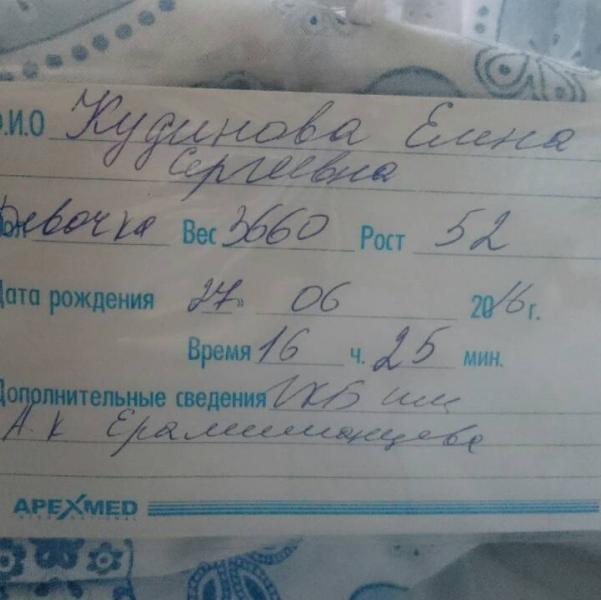 Ф.И.О Кудинова Елена
Сергеевна
Пол Девочка Вес 3660 Рост 52
Дата рождения 27» 06 2016 г.
Время 16 ч. 25 мин.
Дополнительные сведения ГКБ им
А.К Ерамишанцева
APEXMED
INTERNATIONAL